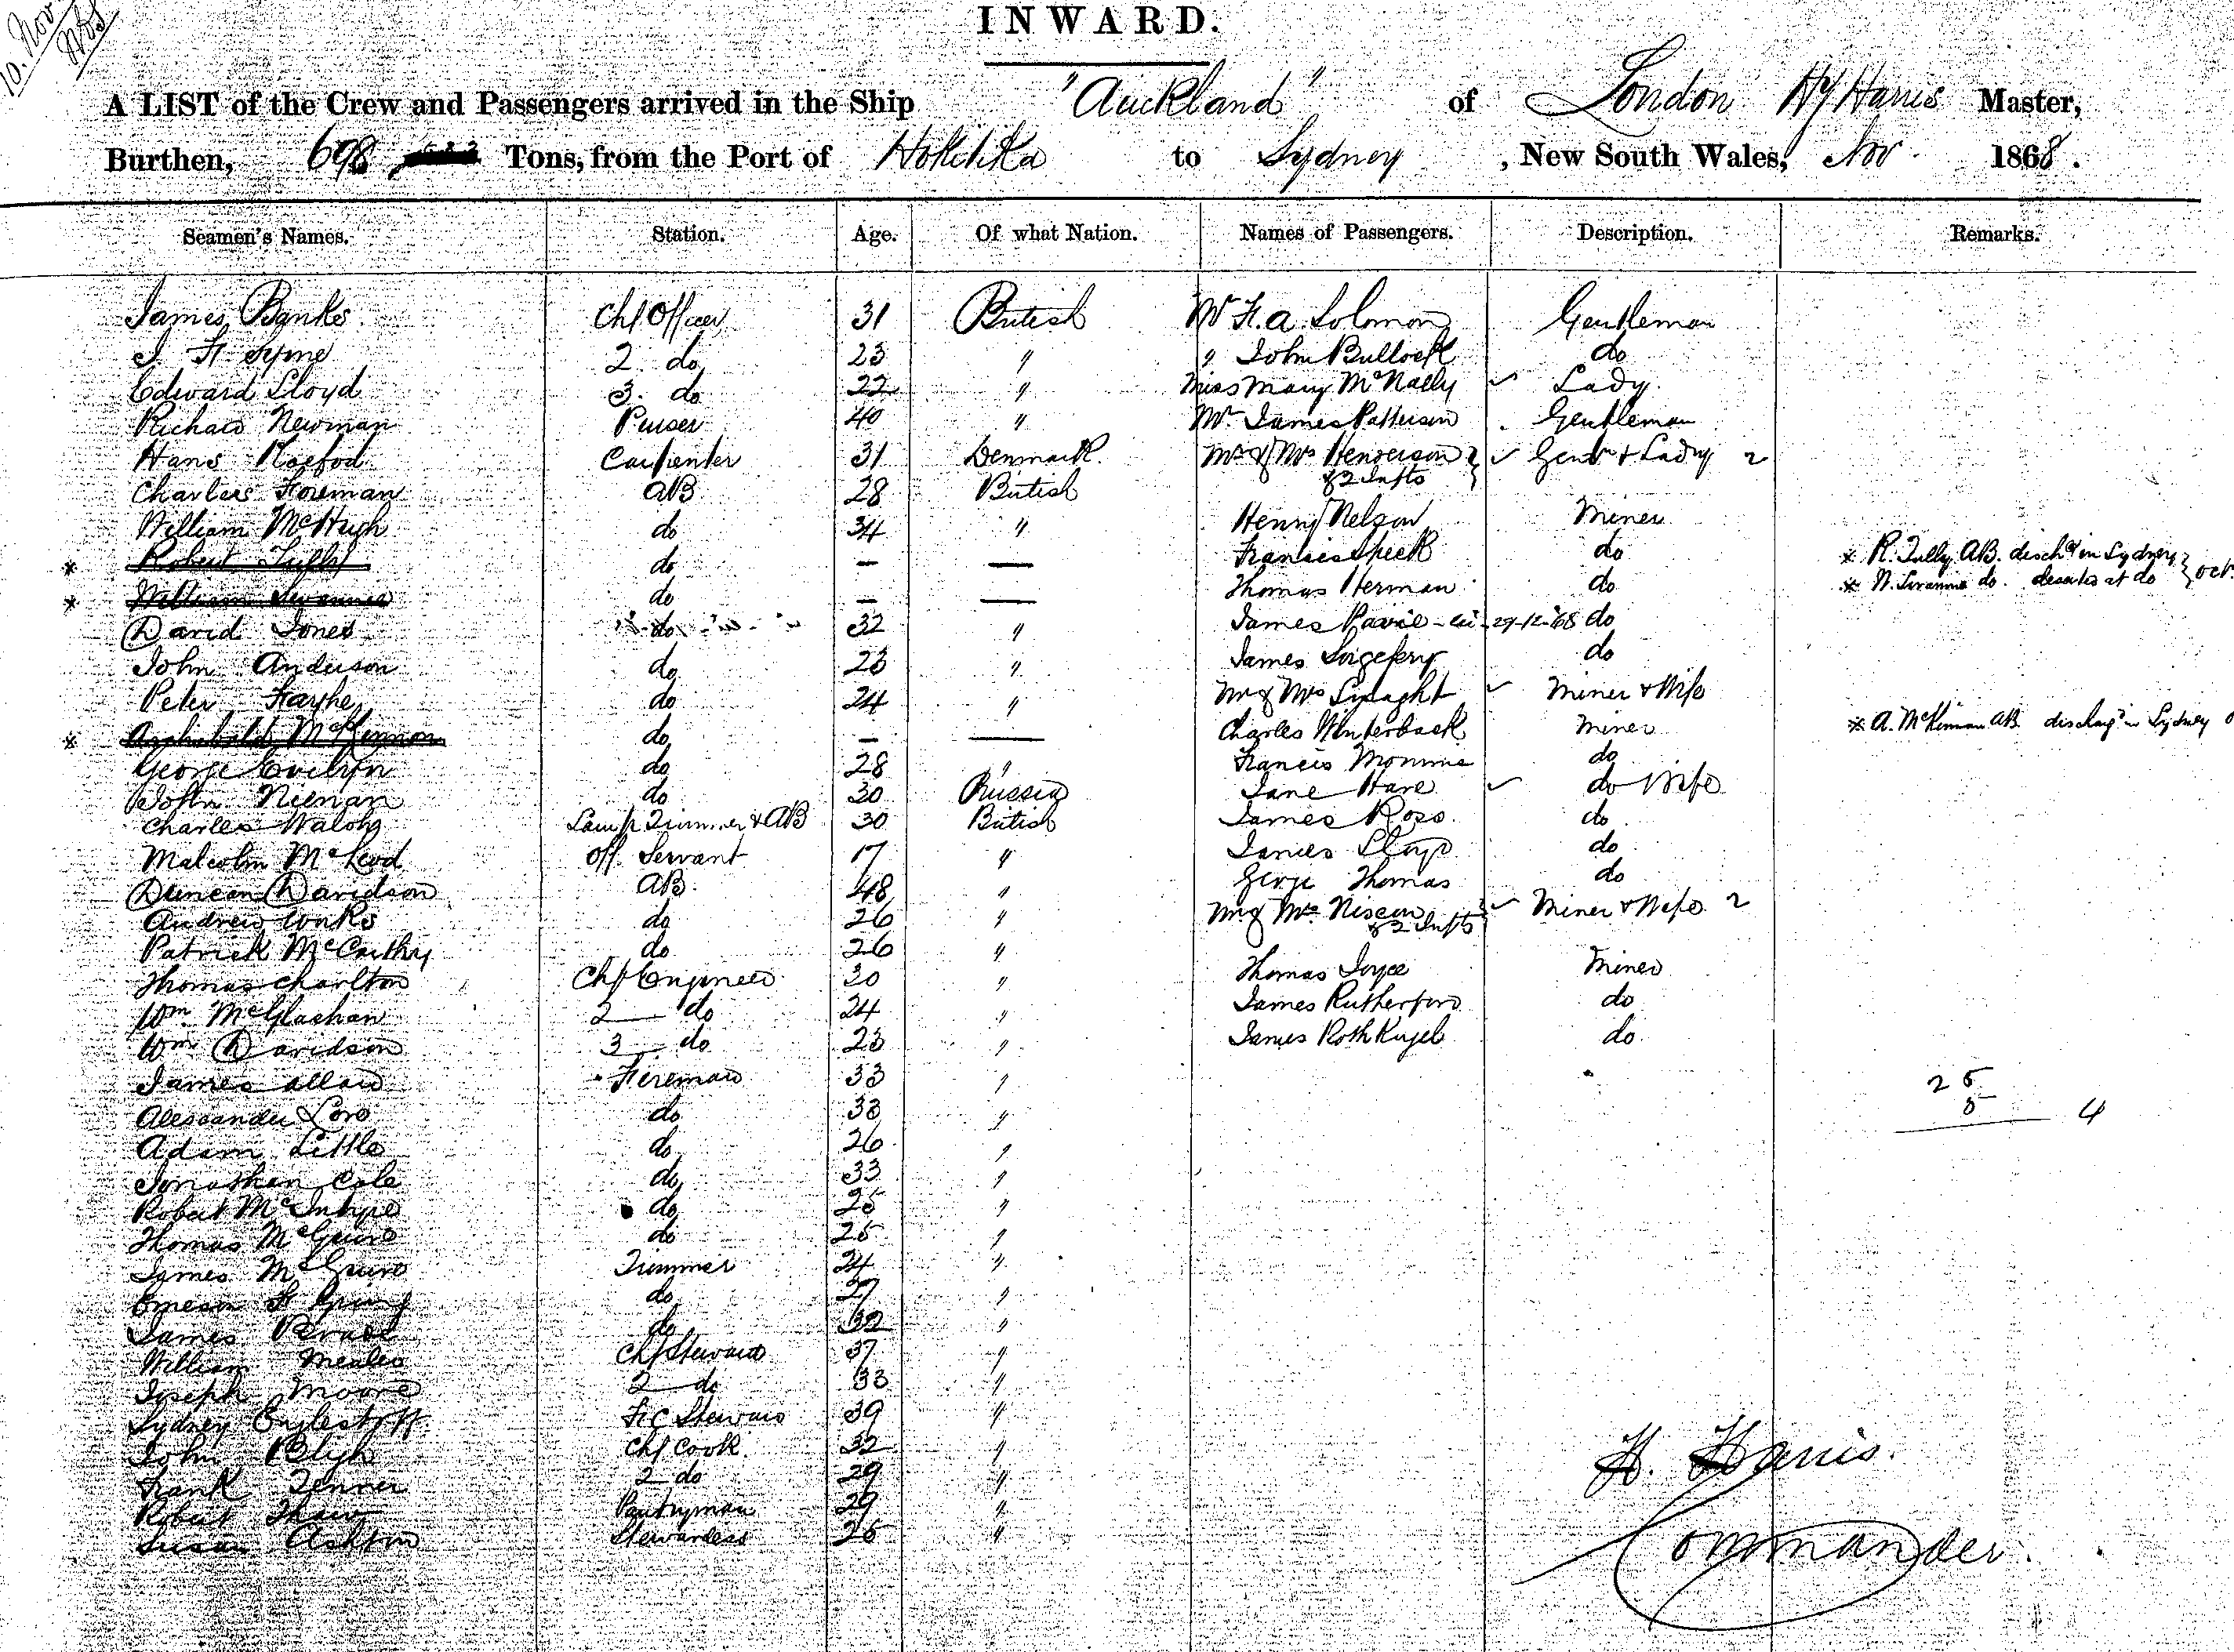 10. Nov
INWARD.
A LIST of the Crew and Passengers arrived in the Ship "Auckland" of London Hy Harris Master,
Burthen, 698 Tons, from the Port of Hokitika to Sydney , New South Wales, Nov. 1868.
Seamen's Names. Station. Age. Of what Nation. Names of Passengers. Description. Remarks.
James Banks Chf Officer 31 British Mr H. A. Solomon Gentleman
2 do 23 " " John Bullock do
Edward Lloyd 3. do 22 " Miss Mary McNally ✓ Lady
Richard Newman Purser 40 " Mr. James Patterson Gentleman
Hans Carpenter 31 Denmark. Mr & Mrs Henderson ✓ Gentn & Lady 2
& 2 Infts
Charles Foreman AB 28 British
William McHugh do 34 " Henry Nelson Miner
* Robert Tully do — — Francis do * R. Tully AB. dischd in Sydney } Oct.
* William do — — Thomas Herman do * W. do. at do
David Jones do 32 " James 29-12-68 do
John Anderson do 23 " James do
Peter do 24 " Mr & Mrs Lysaght ✓ Miner & Wife
* Archibald McKinnon do — — Charles Winterback Miner * A. McKinnon AB dischargd in Sydney
George Evelyn do 28 " Francis do
John Nienan do 30 Russia Jane Hare ✓ do Wife
Charles Walsh Lamp Trimmer & AB 30 British James Ross do
Malcolm McLeod Off. Servant 17 " James Lloyd do
Duncan Davidson AB. 48 " George Thomas do
Andrew do 26 " Mr & Mrs ✓ Miner & Wife 2
& 2 Infts
Patrick McCarthy do 26 "
Thomas Charlton Chf Engineer 30 " Thomas Joyce Miner
Wm. McGlashan 2 do 24 " James Rutherford do
Wm Davidson 3 do 23 " James Roth do
James Allan Fireman 33 " 25
Alexander do 33 " 5 4
Adam Little do 26 "
Jonathan Cole do 33 "
Robert McIntyre do 25 "
Thomas McGuire do 25 "
James McGuire Trimmer 24 "
do 27 "
James do 32 "
William Chf Steward 37 "
Joseph Moore 2 do 33 "
Sydney F.C Steward 39 "
John Bligh Chf Cook 32 "
Frank Jenner 2 do 29 "
Robert Pantryman 29 "
Susan Ashton Stewardess 25 "
H. Harris.
Commander.